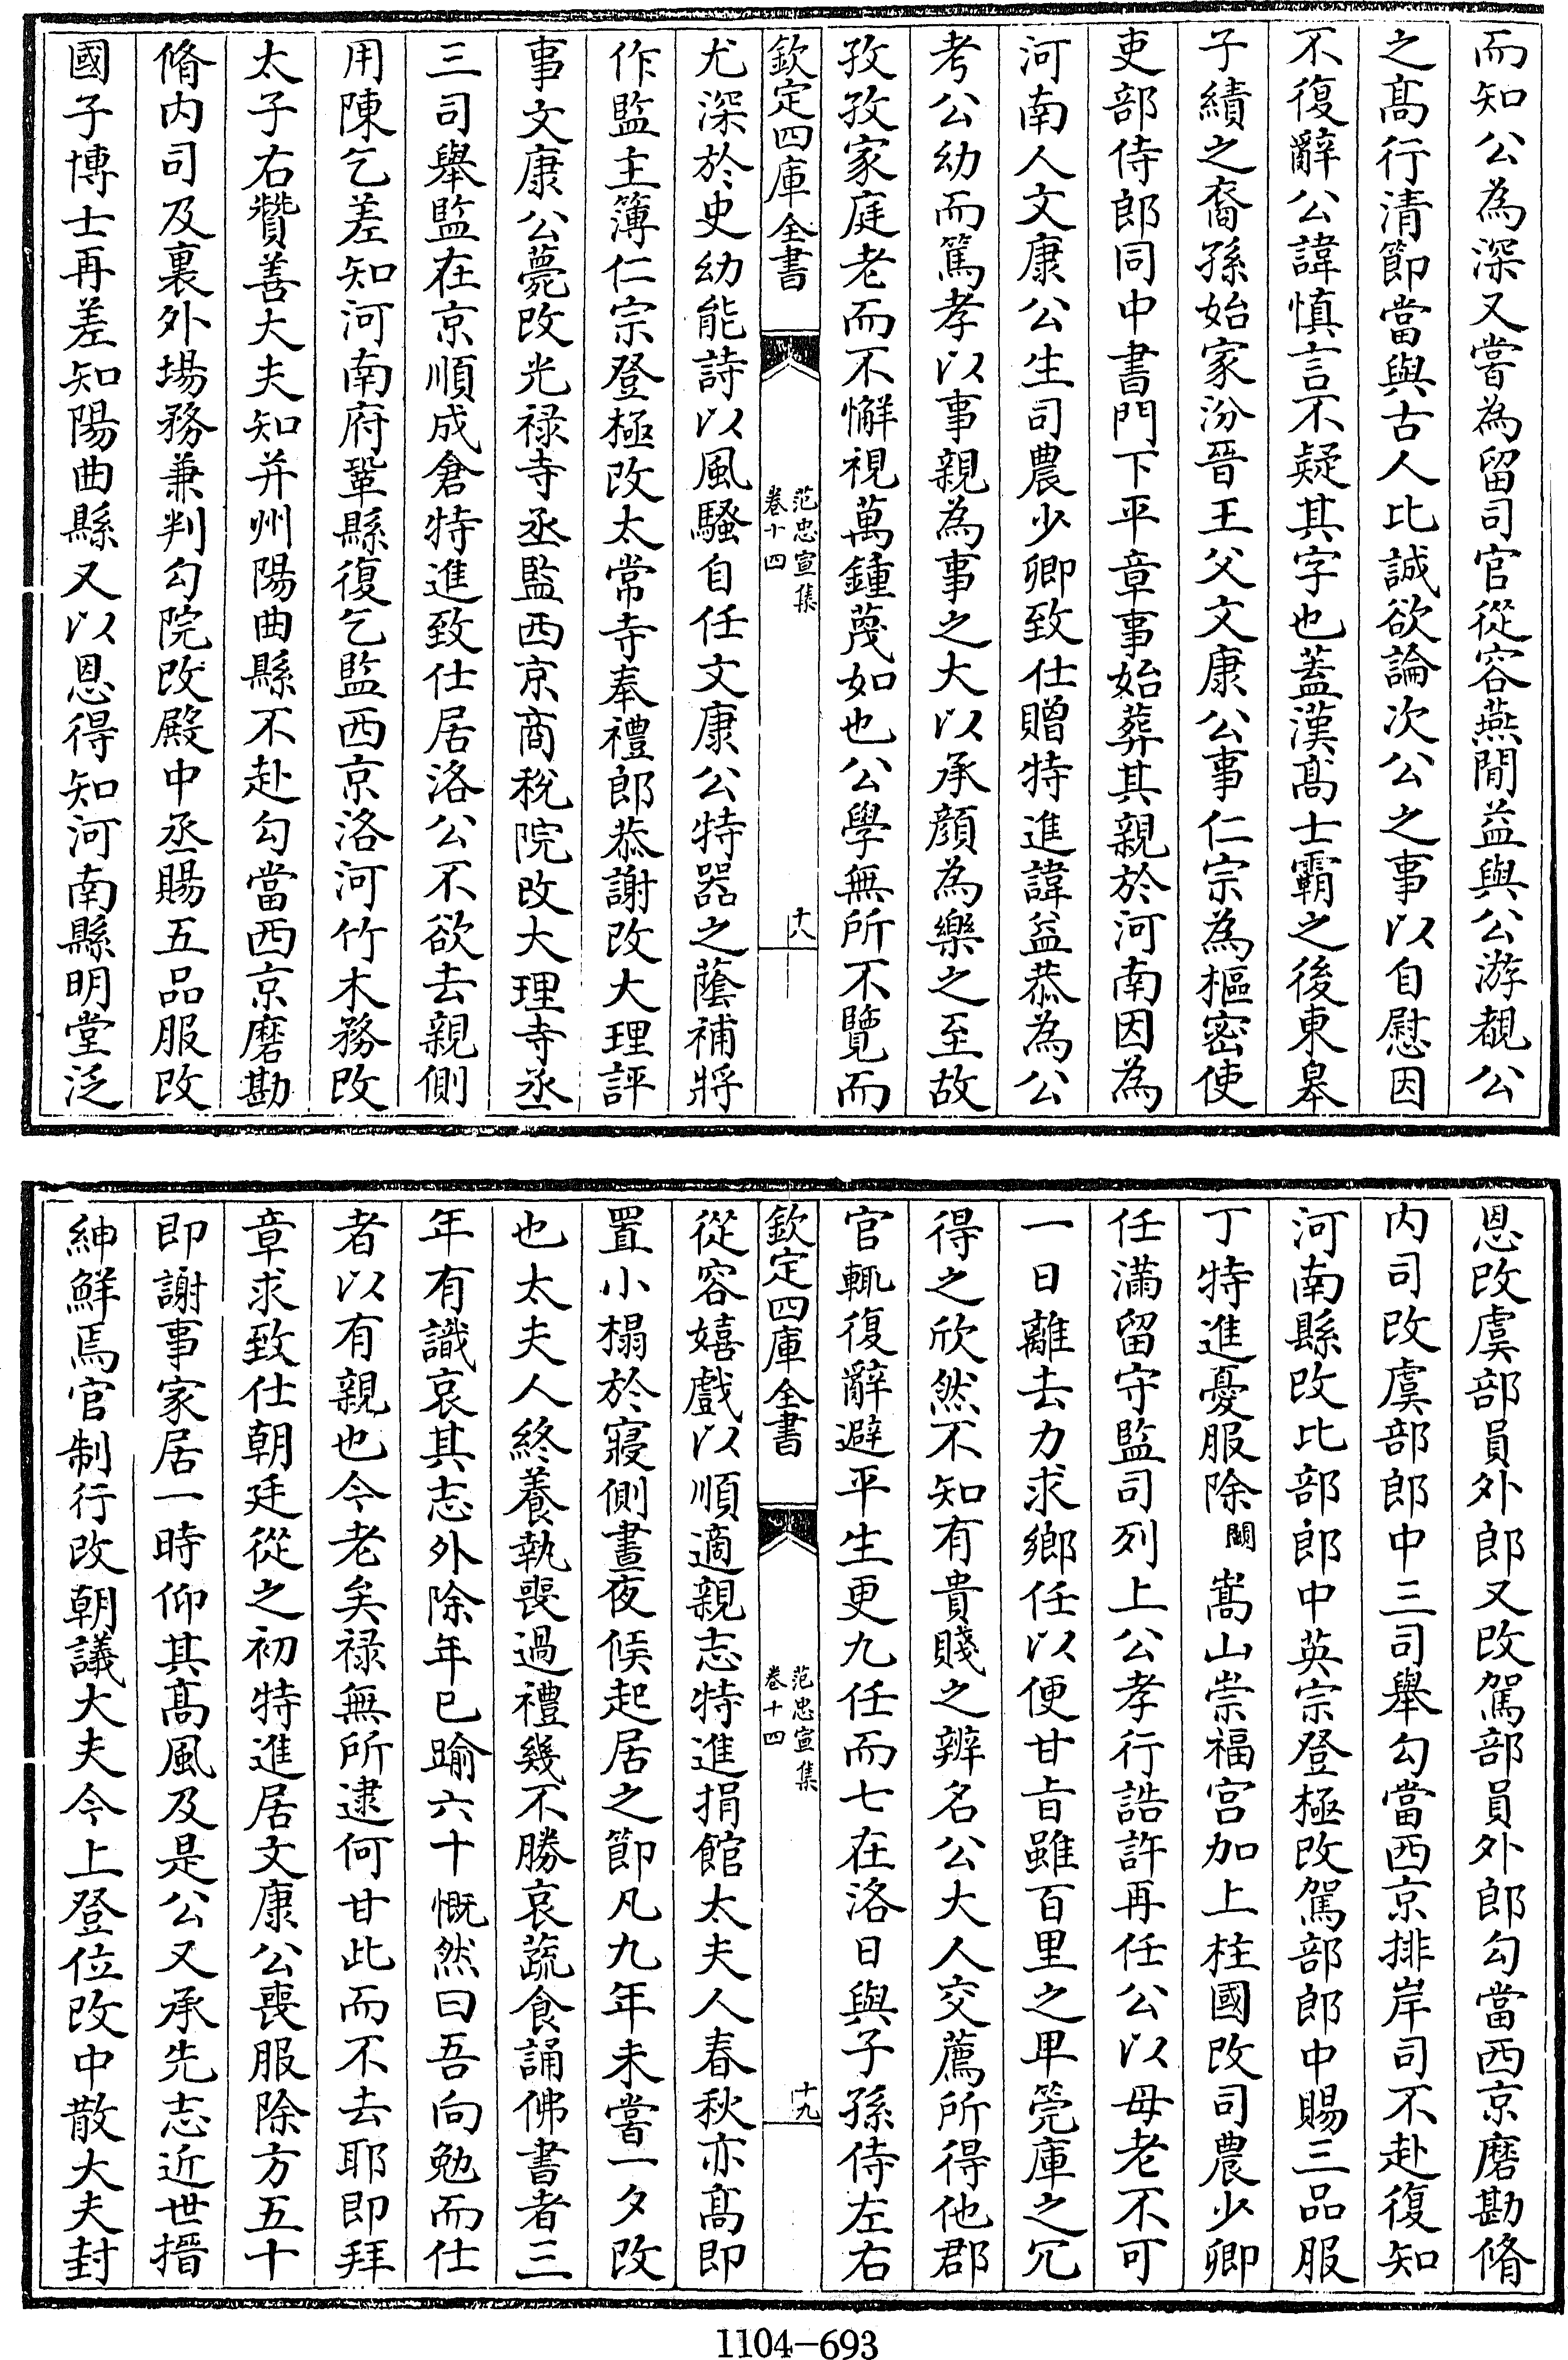 而知公為深又嘗為留司官從容燕閒益與公游覩公
之髙行清節當與古人比誠欲論次公之事以自慰因
不復辭公諱慎言不疑其字也蓋漢髙士霸之後東皋
子績之裔孫始家汾晉王父文康公事仁宗為樞密使
吏部侍郎同中書門下平章事始葬其親於河南因為
河南人文康公生司農少卿致仕贈特進諱益恭為公
考公幼而篤孝以事親為事之大以承顔為樂之至故
孜孜家庭老而不懈視萬鍾蔑如也公學無所不覽而
欽定四庫全書
范忠宣集
卷十四
十八
尤深於史幼能詩以風騷自任文康公特器之蔭補將
作監主簿仁宗登極改太常寺奉禮郎恭謝改大理評
事文康公薨改光禄寺丞監西京商稅院改大理寺丞
三司舉監在京順成倉特進致仕居洛公不欲去親側
用陳乞差知河南府鞏縣復乞監西京洛河竹木務改
太子右贊善大夫知并州陽曲縣不赴勾當西京磨勘
脩内司及裏外場務兼判勾院改殿中丞賜五品服改
國子博士再差知陽曲縣又以恩得知河南縣明堂泛
恩改虞部員外郎又改駕部員外郎勾當西京磨勘脩
内司改虞部郎中三司舉勾當西京排岸司不赴復知
河南縣改比部郎中英宗登極改駕部郎中賜三品服
丁特進憂服除闕嵩山崇福宫加上柱國改司農少卿
任滿留守監司列上公孝行誥許再任公以母老不可
一日離去力求鄉任以便甘㫖雖百里之卑筦庫之冗
得之欣然不知有貴賤之辨名公大人交薦所得他郡
官輒復辭避平生更九任而七在洛日與子孫侍左右
欽定四庫全書
范忠宣集
卷十四
十九
從容嬉戲以順適親志特進捐館太夫人春秋亦髙即
置小榻於寢側晝夜候起居之節凡九年未嘗一夕改
也太夫人終養執喪過禮幾不勝哀蔬食誦佛書者三
年有識哀其志外除年已踰六十慨然曰吾向勉而仕
者以有親也今老矣禄無所逮何甘此而不去耶即拜
章求致仕朝廷從之初特進居文康公喪服除方五十
即謝事家居一時仰其髙風及是公又承先志近世搢
紳鮮焉官制行改朝議大夫今上登位改中散大夫封
1104-693